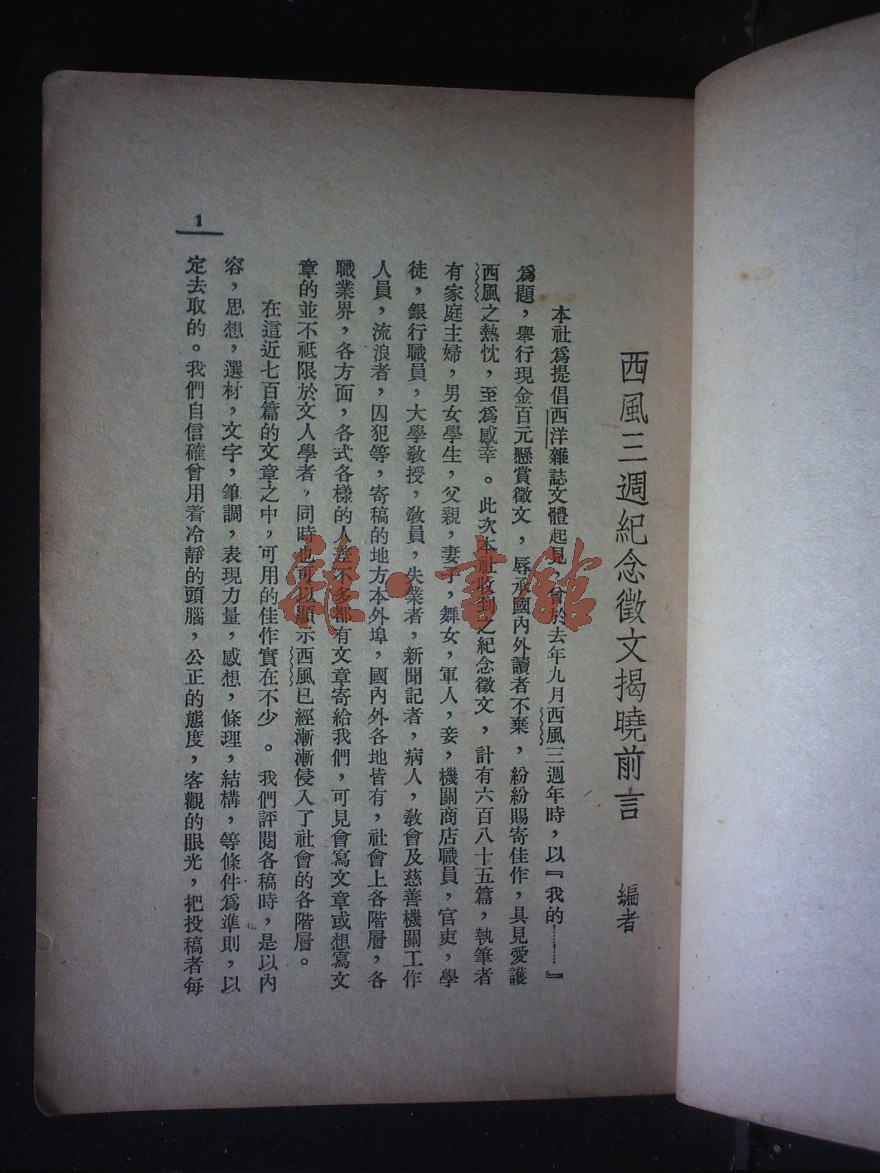 西風三週紀念徵文揭曉前言　編者
本社爲提倡西洋雜誌文體起見，曾於去年九月西風三週年時，以『我的……』
爲題，舉行現金百元懸賞徵文，辱承國內外讀者不棄，紛紛賜寄佳作，具見愛護
西風之熱忱，至爲感幸。此次本社收到之紀念徵文，計有六百八十五篇，執筆者
有家庭主婦，男女學生，父親，妻子，舞女，軍人，妾，機關商店職員，官吏，學
徒，銀行職員，大學敎授，敎員，失業者，新聞記者，病人，敎會及慈善機關工作
人員，流浪者，囚犯等，寄稿的地方本外埠，國內外各地皆有，社會上各階層，各
職業界，各方面，各式各樣的人差不多都有文章寄給我們，可見會寫文章或想寫文
章的並不祗限於文人學者，同時也可以顯示西風已經漸漸侵入了社會的各階層。
在這近七百篇的文章之中，可用的佳作實在不少。我們評閱各稿時，是以內
容，思想，選材，文字，筆調，表現力量，感想，條理，結構，等條件爲準則，以
定去取的。我們自信確曾用着冷靜的頭腦，公正的態度，客觀的眼光，把投稿者每
1
雜·書館